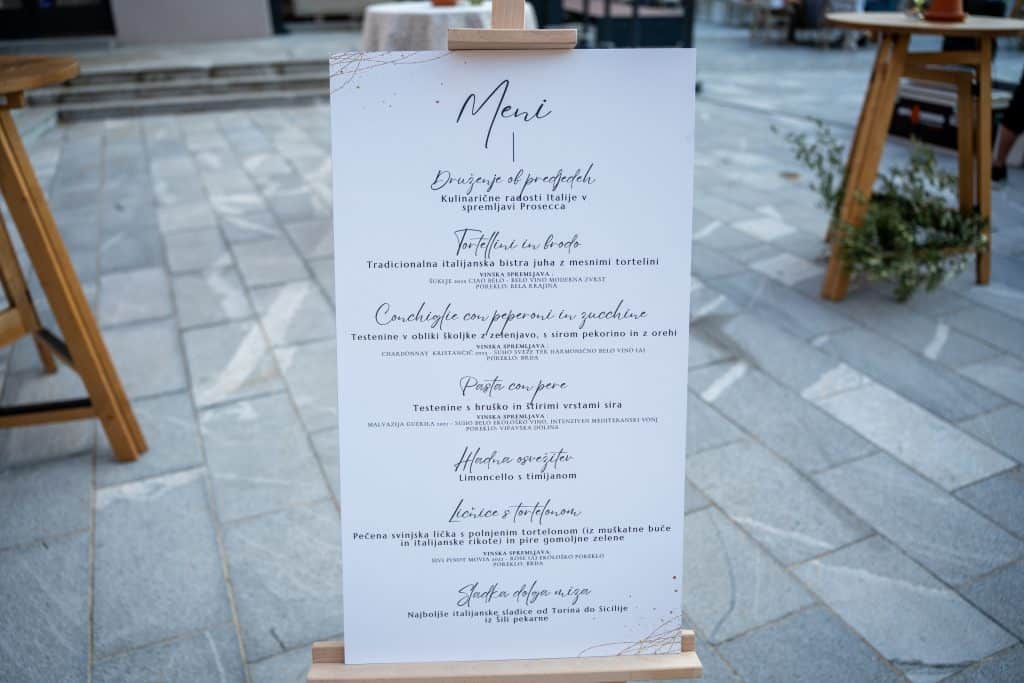 Meni
Druženje ob predjedeh
Kulinarične radosti Italije v
spremljavi Prosecca
Tortellini in brodo
Tradicionalna italijanska bistra juha z mesnimi tortelini
VINSKA SPREMLJAVA :
ŠUKLJE 2022 CIAO BELO - BELO VINO MODERNA ZVRST
POREKLO: BELA KRAJINA
Conchiglie con peperoni in zucchine
Testenine v obliki školjke z zelenjavo, s sirom pekorino in z orehi
VINSKA SPREMLJAVA :
CHARDONNAY KRISTANČIČ 2022 - SUHO SVEŽE TER HARMONIČNO BELO VINO (A)
POREKLO: BRDA
Pasta con pere
Testenine s hruško in štirimi vrstami sira
VINSKA SPREMLJAVA :
MALVAZIJA GUERILA 2021 - SUHO BELO EKOLOŠKO VINO, INTENZIVEN MEDITERANSKI VONJ
POREKLO: VIPAVSKA DOLINA
Hladna osvežitev
Limoncello s timijanom
Ličnice s tortelonom
Pečena svinjska lička s polnjenim tortelonom (iz muškatne buče
in italijanske rikote) in pire gomoljne zelene
VINSKA SPREMLJAVA :
SIVI PINOT MOVIA 2022 - ROSE (A) EKOLOŠKO POREKLO
POREKLO: BRDA
Sladka dolga miza
Najboljše italijanske sladice od Torina do Sicilije
iz Šili pekarne